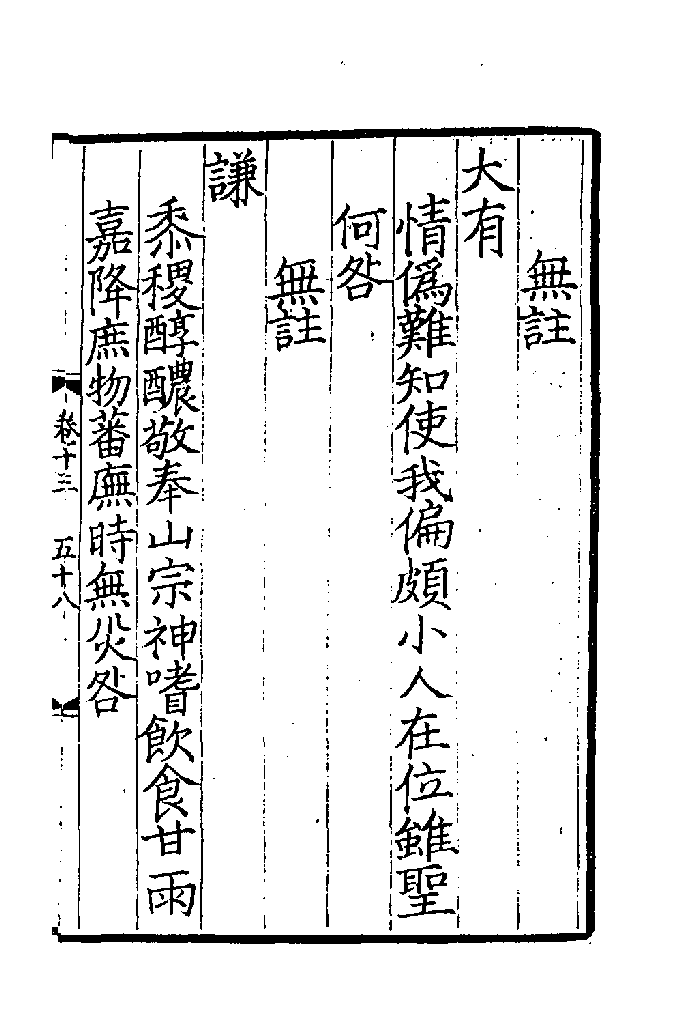 無註
大有
情僞難知使我偏頗小人在位雖聖
何咎
無註
謙
黍稷醇醲敬奉山宗神嗜飲食甘雨
嘉降庶物蕃廡時無災咎
卷十三 五十八